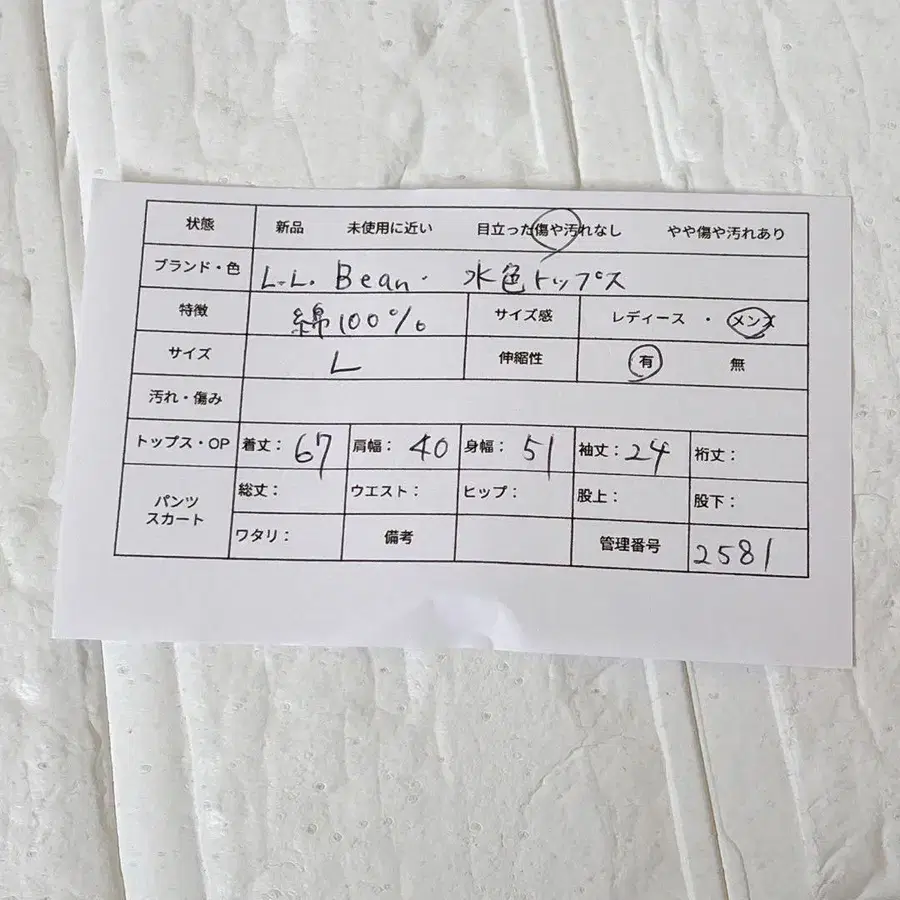 状態 新品 未使用に近い 目立った傷や汚れなし やや傷や汚れあり
ブランド・色 L.L. Bean. 水色トップス
特徴 綿100% サイズ感 レディース ・ メンズ
サイズ L 伸縮性 有 無
汚れ・傷み
トップス・OP 着丈: 67 肩幅: 40 身幅: 51 袖丈: 24 裄丈:
パンツ スカート 総丈: ウエスト: ヒップ: 股上: 股下:
ワタリ: 備考 管理番号 2581